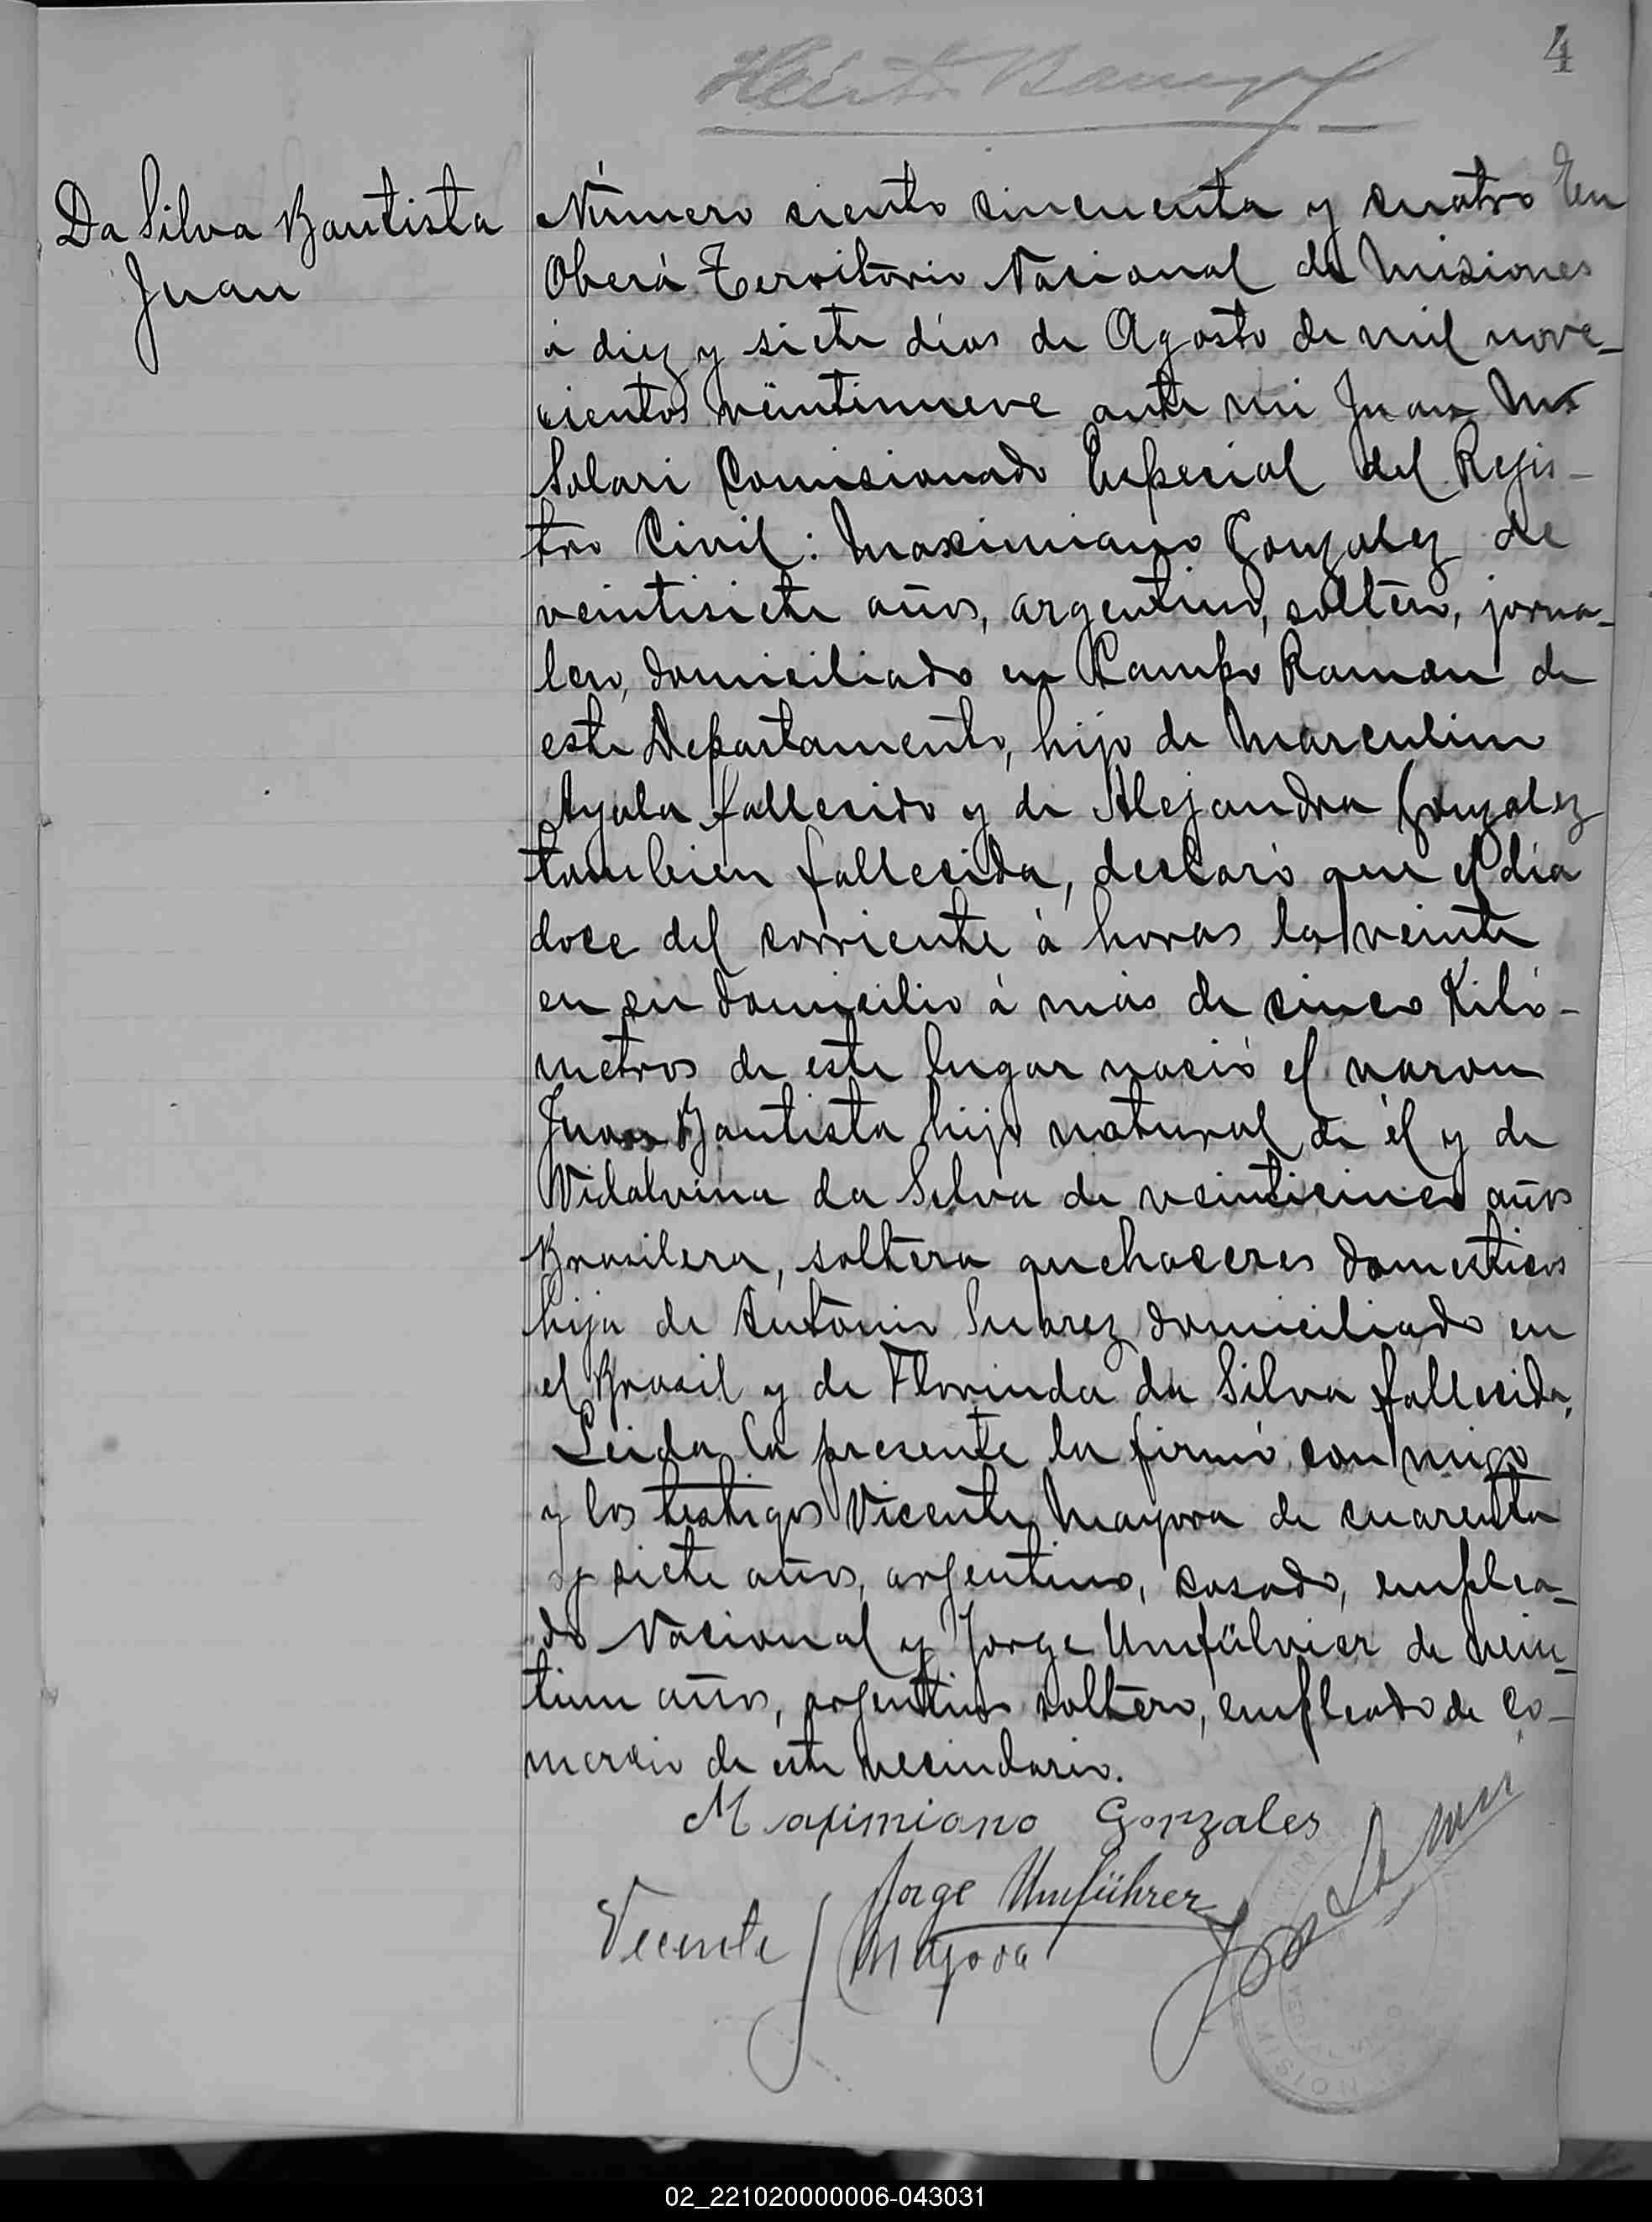 4
Da Silva Bautista
Juan
Número ciento cincuenta y cuatro En
Oberá Territorio Nacional de Misiones
á diez y siete días de Agosto de mil nove-
cientos veintinueve ante mi Juan M.
Solari Comisionado Especial del Regis-
tro Civil: Maximiano Gonzalez de
veintisiete años, argentino, soltero, jorna-
lero, domiciliado en Campo Ramon de
este Departamento, hijo de Marculino
Ayala fallecido y de Alejandra Gonzalez
tambien fallecida, declaró que el día
doce del corriente á horas la veinte
en su domicilio á más de cinco Kiló-
metros de este lugar nació el varon
Juan Bautista hijo natural de él y de
Vidalvina da Silva de veinticinco años
Brasilera, soltera quehaceres domesticos
hija de Antonio Suarez domiciliado en
el Brasil y de Florinda da Silva fallecida,
Leida la presente la firmó con migo
y los testigos Vicente Mayora de cuarenta
y siete años, argentino, casado, emplea-
do Nacional y Jorge Umfülvier de vein-
tiun años, argentino soltero, empleado de Co-
mercio de este vecindario.
Maximiano Gonzales
Jorge Umführer
Vicente Mayora
MISIONES
02_221020000006-043031